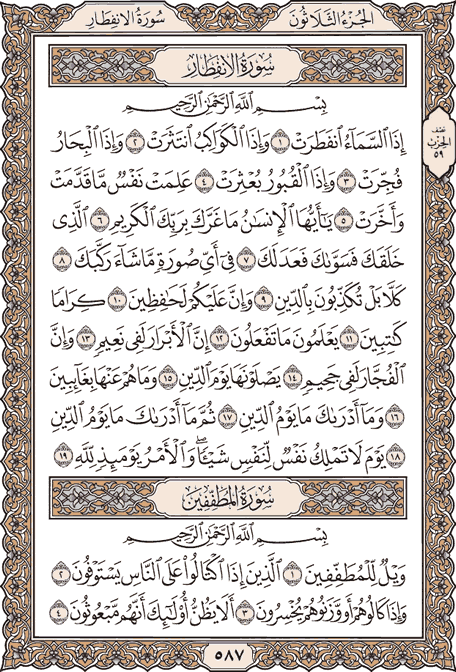 سُورَةُ الِانفِطَارِ
الجُزْءُ الثَّلَاثُونَ
سُورَةُ الِانفِطَارِ
بِسْمِ ٱللَّهِ ٱلرَّحْمَٰنِ ٱلرَّحِيمِ
إِذَا ٱلسَّمَآءُ ٱنفَطَرَتْ ١ وَإِذَا ٱلْكَوَاكِبُ ٱنتَثَرَتْ ٢ وَإِذَا ٱلْبِحَارُ
فُجِّرَتْ ٣ وَإِذَا ٱلْقُبُورُ بُعْثِرَتْ ٤ عَلِمَتْ نَفْسٌ مَّا قَدَّمَتْ
وَأَخَّرَتْ ٥ يَٰٓأَيُّهَا ٱلْإِنسَٰنُ مَا غَرَّكَ بِرَبِّكَ ٱلْكَرِيمِ ٦ ٱلَّذِى
خَلَقَكَ فَسَوَّىٰكَ فَعَدَلَكَ ٧ فِىٓ أَىِّ صُورَةٍ مَّا شَآءَ رَكَّبَكَ ٨
كَلَّا بَلْ تُكَذِّبُونَ بِٱلدِّينِ ٩ وَإِنَّ عَلَيْكُمْ لَحَٰفِظِينَ ١٠ كِرَامًا
كَٰتِبِينَ ١١ يَعْلَمُونَ مَا تَفْعَلُونَ ١٢ إِنَّ ٱلْأَبْرَارَ لَفِى نَعِيمٍ ١٣ وَإِنَّ
ٱلْفُجَّارَ لَفِى جَحِيمٍ ١٤ يَصْلَوْنَهَا يَوْمَ ٱلدِّينِ ١٥ وَمَا هُمْ عَنْهَا بِغَآئِبِينَ
١٦ وَمَآ أَدْرَىٰكَ مَا يَوْمُ ٱلدِّينِ ١٧ ثُمَّ مَآ أَدْرَىٰكَ مَا يَوْمُ ٱلدِّينِ
١٨ يَوْمَ لَا تَمْلِكُ نَفْسٌ لِّنَفْسٍ شَيْـًٔا ۖ وَٱلْأَمْرُ يَوْمَئِذٍ لِّلَّهِ ١٩
سُورَةُ المُطَفِّفِينَ
بِسْمِ ٱللَّهِ ٱلرَّحْمَٰنِ ٱلرَّحِيمِ
وَيْلٌ لِّلْمُطَفِّفِينَ ١ ٱلَّذِينَ إِذَا ٱكْتَالُوا۟ عَلَى ٱلنَّاسِ يَسْتَوْفُونَ ٢
وَإِذَا كَالُوهُمْ أَو وَّزَنُوهُمْ يُخْسِرُونَ ٣ أَلَا يَظُنُّ أُو۟لَٰٓئِكَ أَنَّهُم مَّبْعُوثُونَ ٤
نصف
الحزب
٥٩
٥٨٧